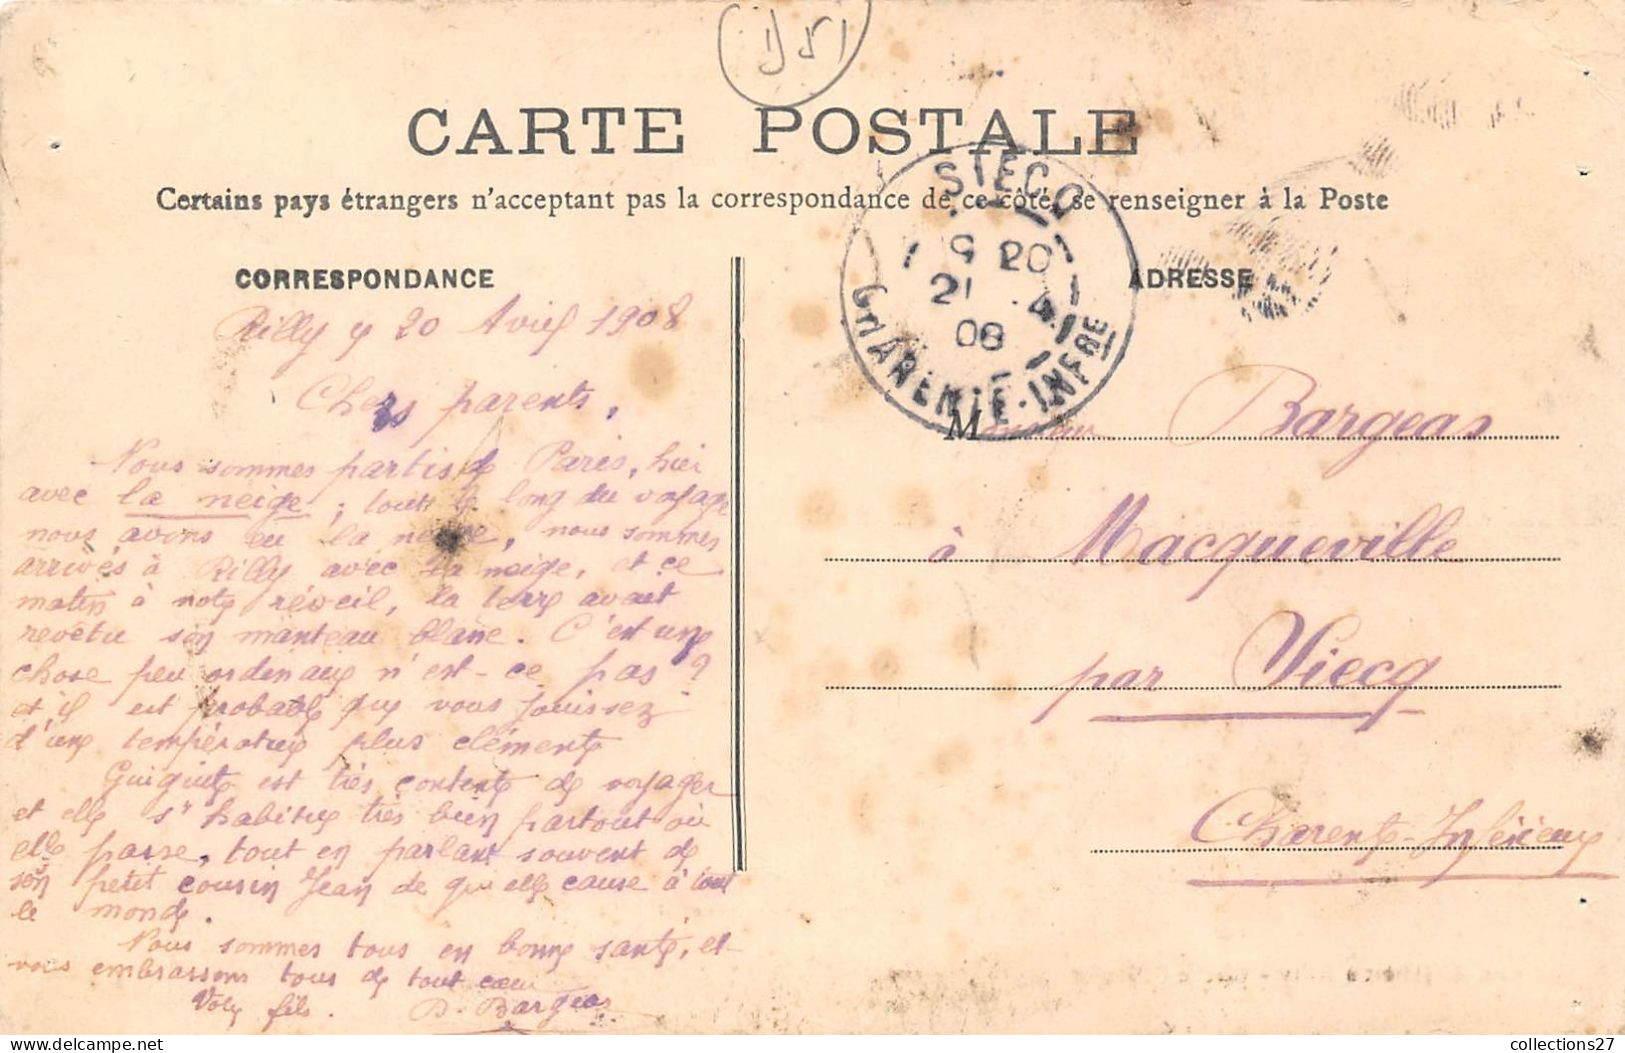 CARTE POSTALE
Certains pays étrangers n'acceptant pas la correspondance de ce côté, se renseigner à la Poste
CORRESPONDANCE
Rilly 20 Avril 1908
Chers parents,
Nous sommes partis de Paris, hier
avec la neige ; tout le long du voyage
nous avons eu la neige, nous sommes
arrivés à Rilly avec la neige, et ce
matin à notre réveil, la terre avait
revêtu son manteau blanc. C'est une
chose peu ordinaire n'est-ce pas ?
et il est probable que vous jouissez
d'une température plus clémente
Guiguite est très contente de voyager
et elle s'habitue très bien partout où
elle passe, tout en parlant souvent de
son petit cousin Jean de qui elle cause à tout
le monde.
Nous sommes tous en bonne santé, et
vous embrassons tous de tout cœur
Votre fils. D. Bargeas
SIECQ
9 20
21 4
08
CHARENTE-INFRE
ADRESSE
Monsieur Bargeas
à Macqueville
par Siecq
Charente-Inférieure
collections27